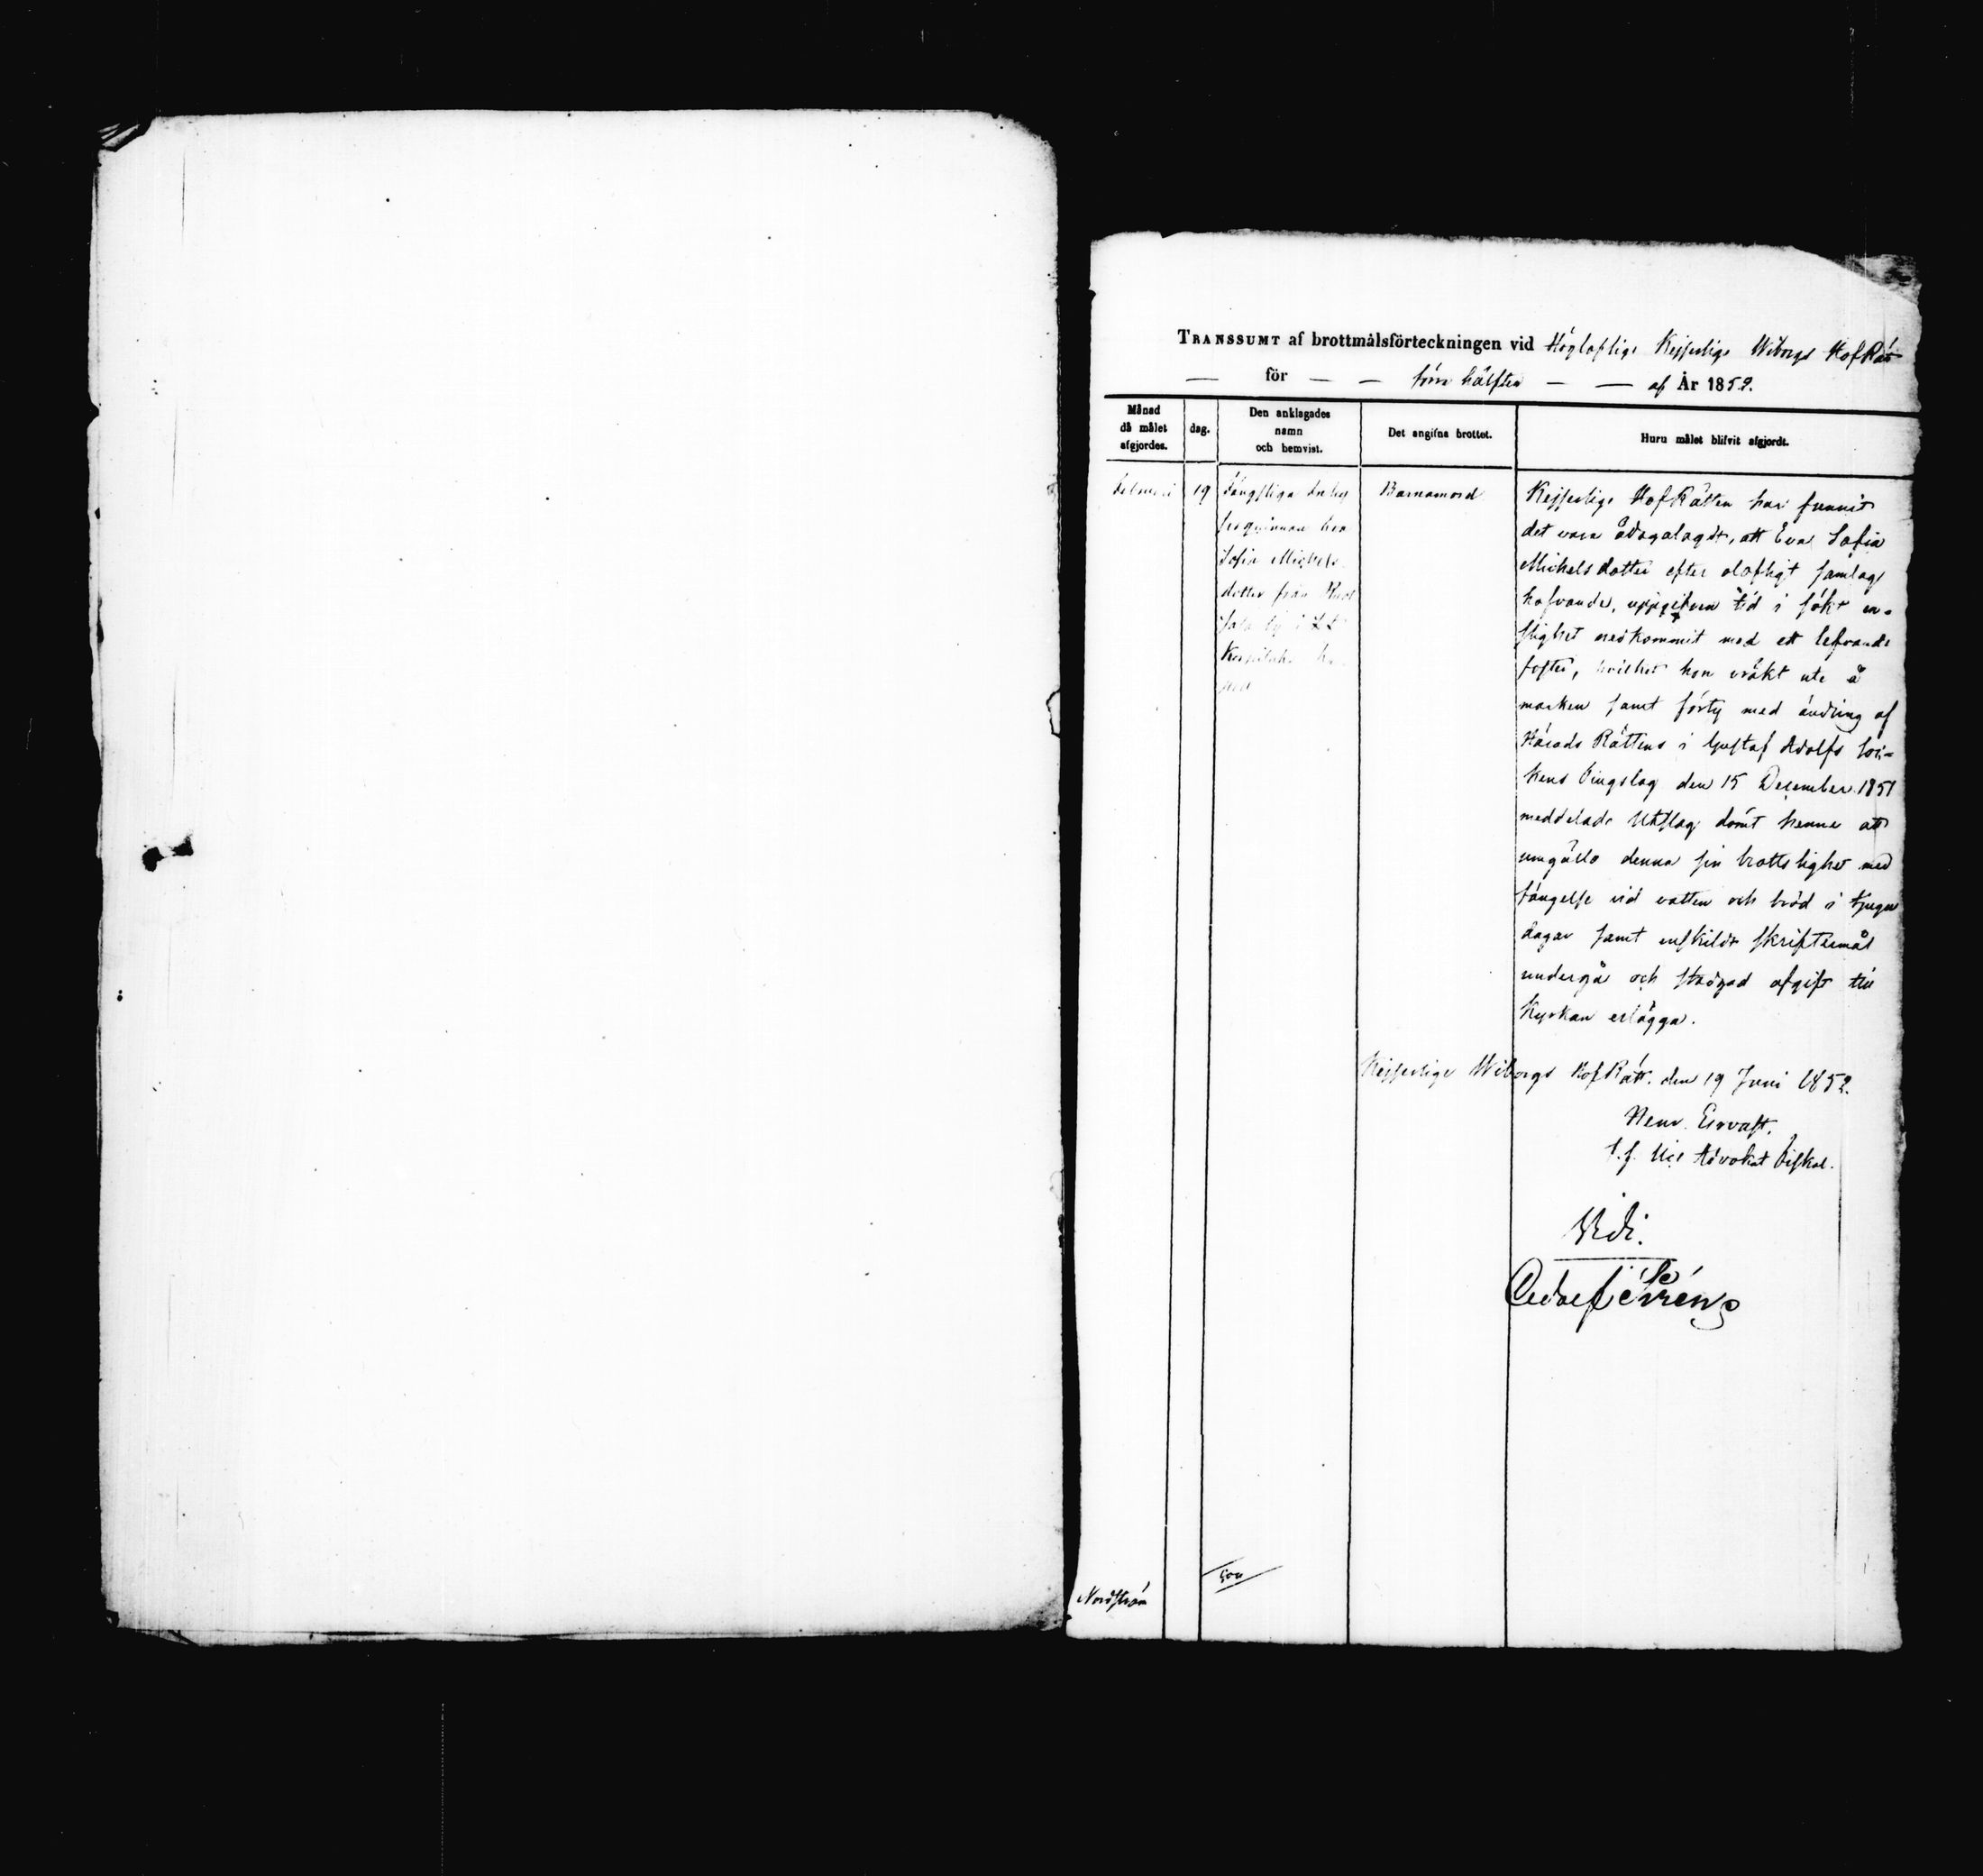 TRANSSUMT af brottmålsförteckningen vid Högloflige Kejserlige Wiborgs HofRätt
— för — — förra hälften — — af År 1852.
Månad
då målet
afgjordes.
dag.
Den anklagades
namn
och hemvist.
Det angifna brottet.
Huru målet blifvit afgjordt.
19
Fängsliga
Sofia Michels-
dotter från
by i
Barnamord
Kejserlige HofRätten har funnit
det vara ådagalagdt, att Eva Sofia
Michelsdotter efter olofligt samlag
hafvande, uppgifven tid i sökt en-
slighet nedkommit med ett lefvande
foster, hvilket hon vräkt ute å
marken samt förty med ändring af
Härads Rättens i Gustaf Adolfs Soc-
kens Tingslag den 15 December 1851
meddelade Utslag dömt henne att
umgälla denna sin brottslighet med
fängelse vid vatten och bröd i tjugu
dagar samt enskildt skriftermål
undergå och stadgad afgift till
Kyrkan erlägga.
Kejserlige Wiborgs HofRätt. den 19 Juni 1852.
Henr.
t.f. Vice Advokat Fiskal.
Vidi.
Nordström